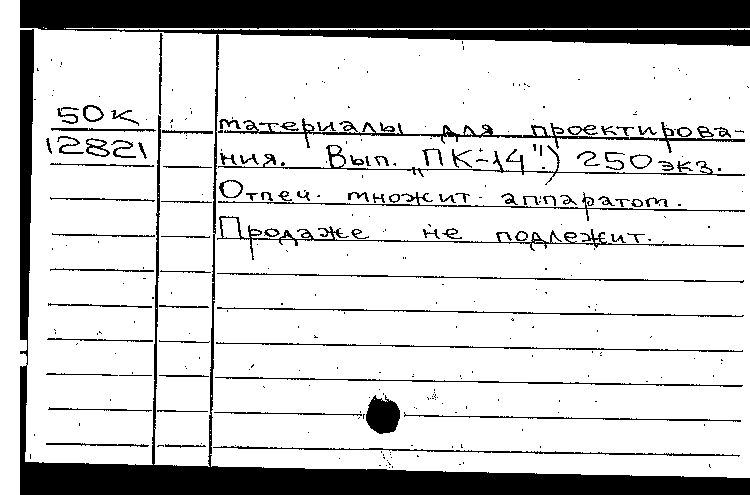 50К
12821
материалы для проектирова-
ния. Вып. „ПК-14".) 250 экз.
Отпеч. множит. аппаратом.
Продаже не подлежит.